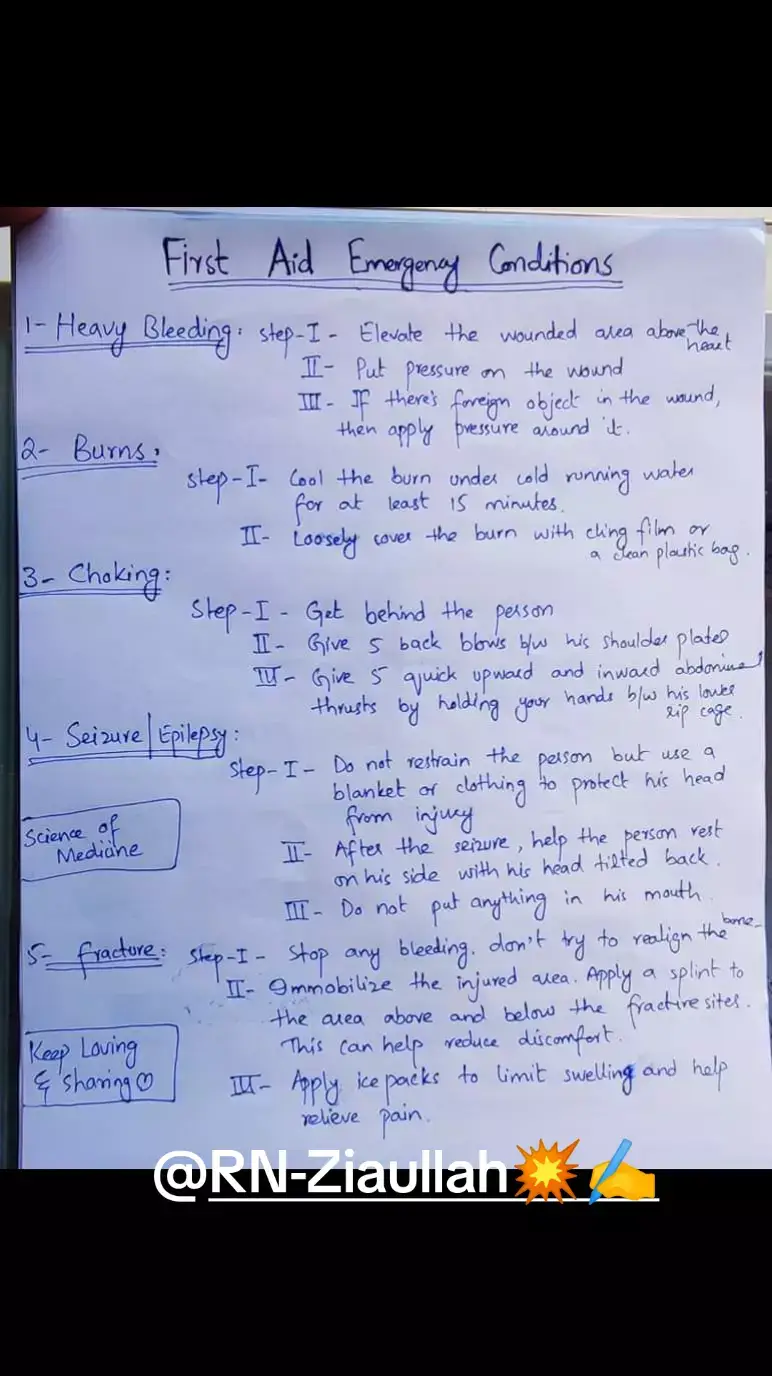 First Aid Emergency Conditions
1- Heavy Bleeding: step-I- Elevate the wounded area above the heart
II- Put pressure on the wound
III- If there's foreign object in the wound,
then apply pressure around it.
2- Burns,
step-I- Cool the burn under cold running water
for at least 15 minutes.
II- Loosely cover the burn with cling film or
a clean plastic bag.
3- Choking:
Step-I- Get behind the person
II- Give 5 back blows b/w his shoulder plates
III- Give 5 quick upward and inward abdominal
thrusts by holding your hands b/w his lower
rip cage.
4- Seizure/Epilepsy:
Step-I- Do not restrain the person but use a
blanket or clothing to protect his head
from injury
Science of
Medicine
II- After the seizure, help the person rest
on his side with his head tilted back.
III- Do not put anything in his mouth.
5- fracture: Step-I- Stop any bleeding. don't try to realign the bone-
II- Immobilize the injured area. Apply a splint to
the area above and below the fracture sites.
This can help reduce discomfort.
Keep Loving
& Sharing
III- Apply ice packs to limit swelling and help
relieve pain.
@RN-Ziaullah💥✍️